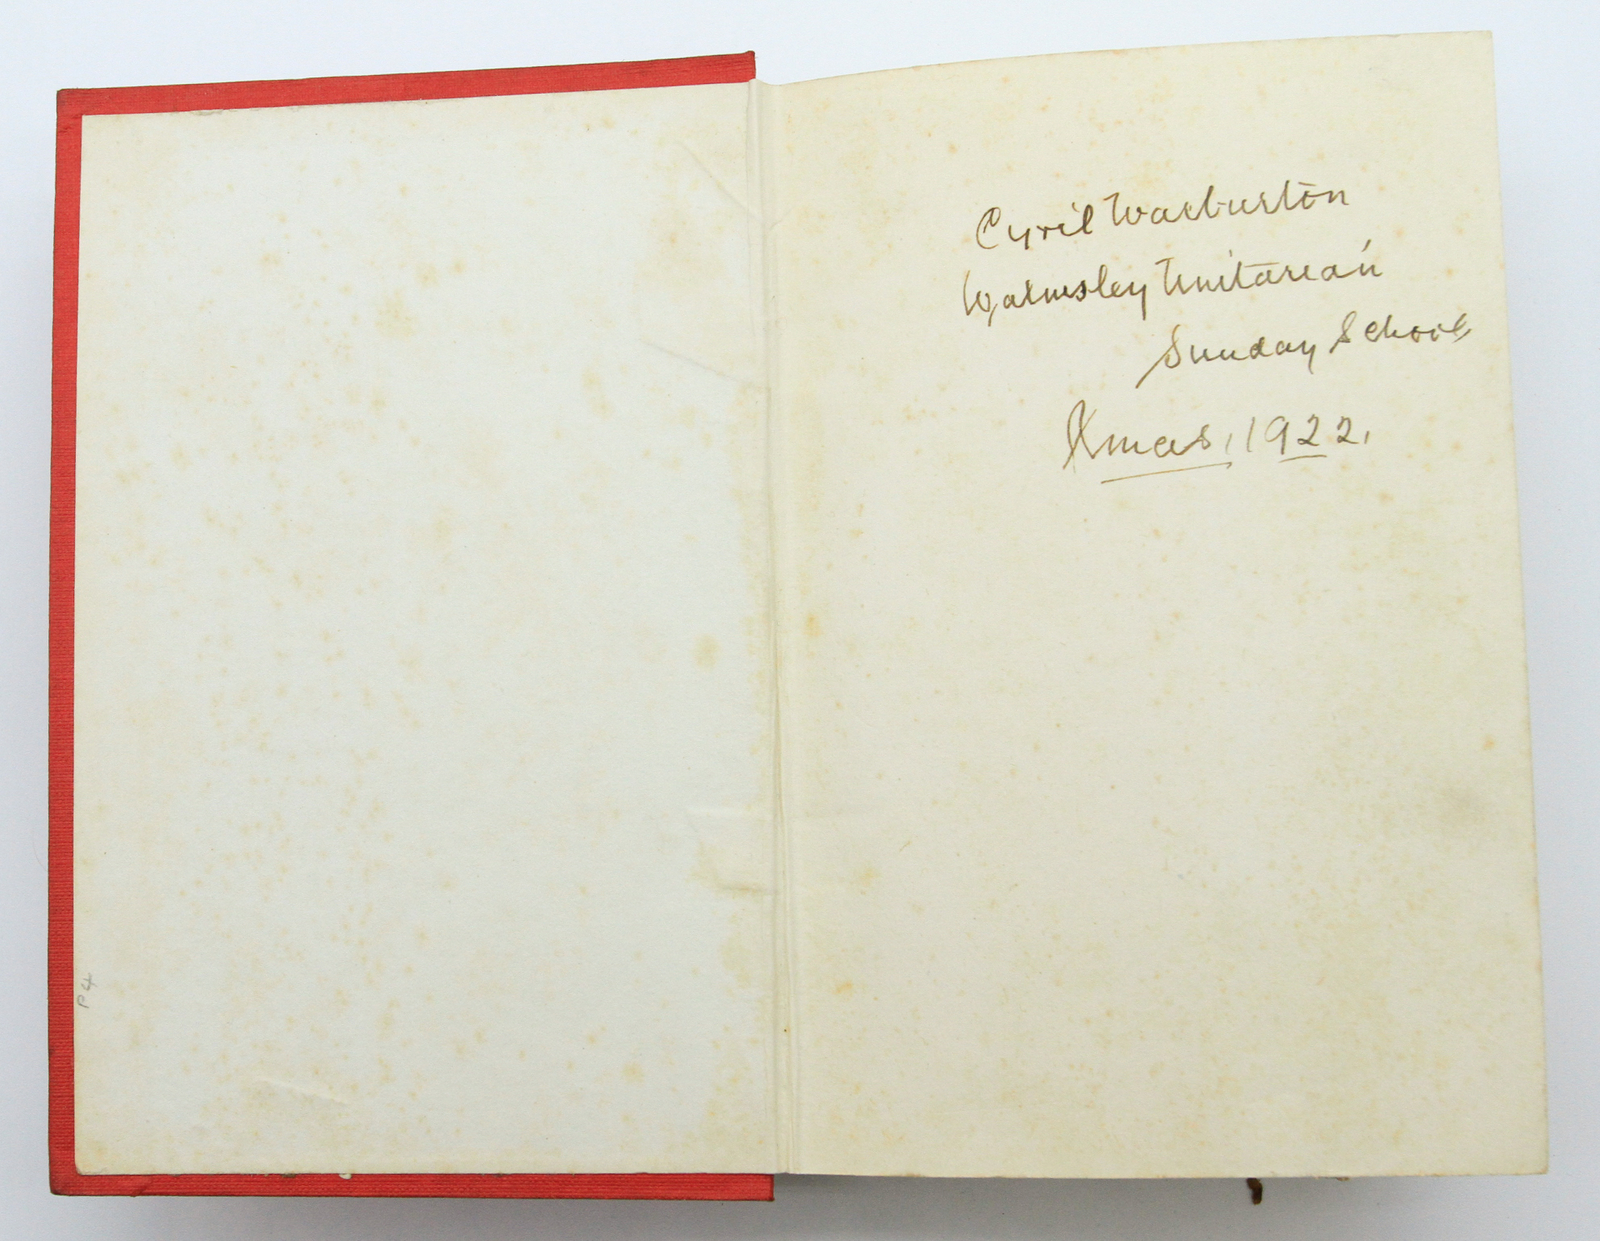 P4
Cyril Warburton
Walmsley Unitarian
Sunday School
Xmas, 1922.